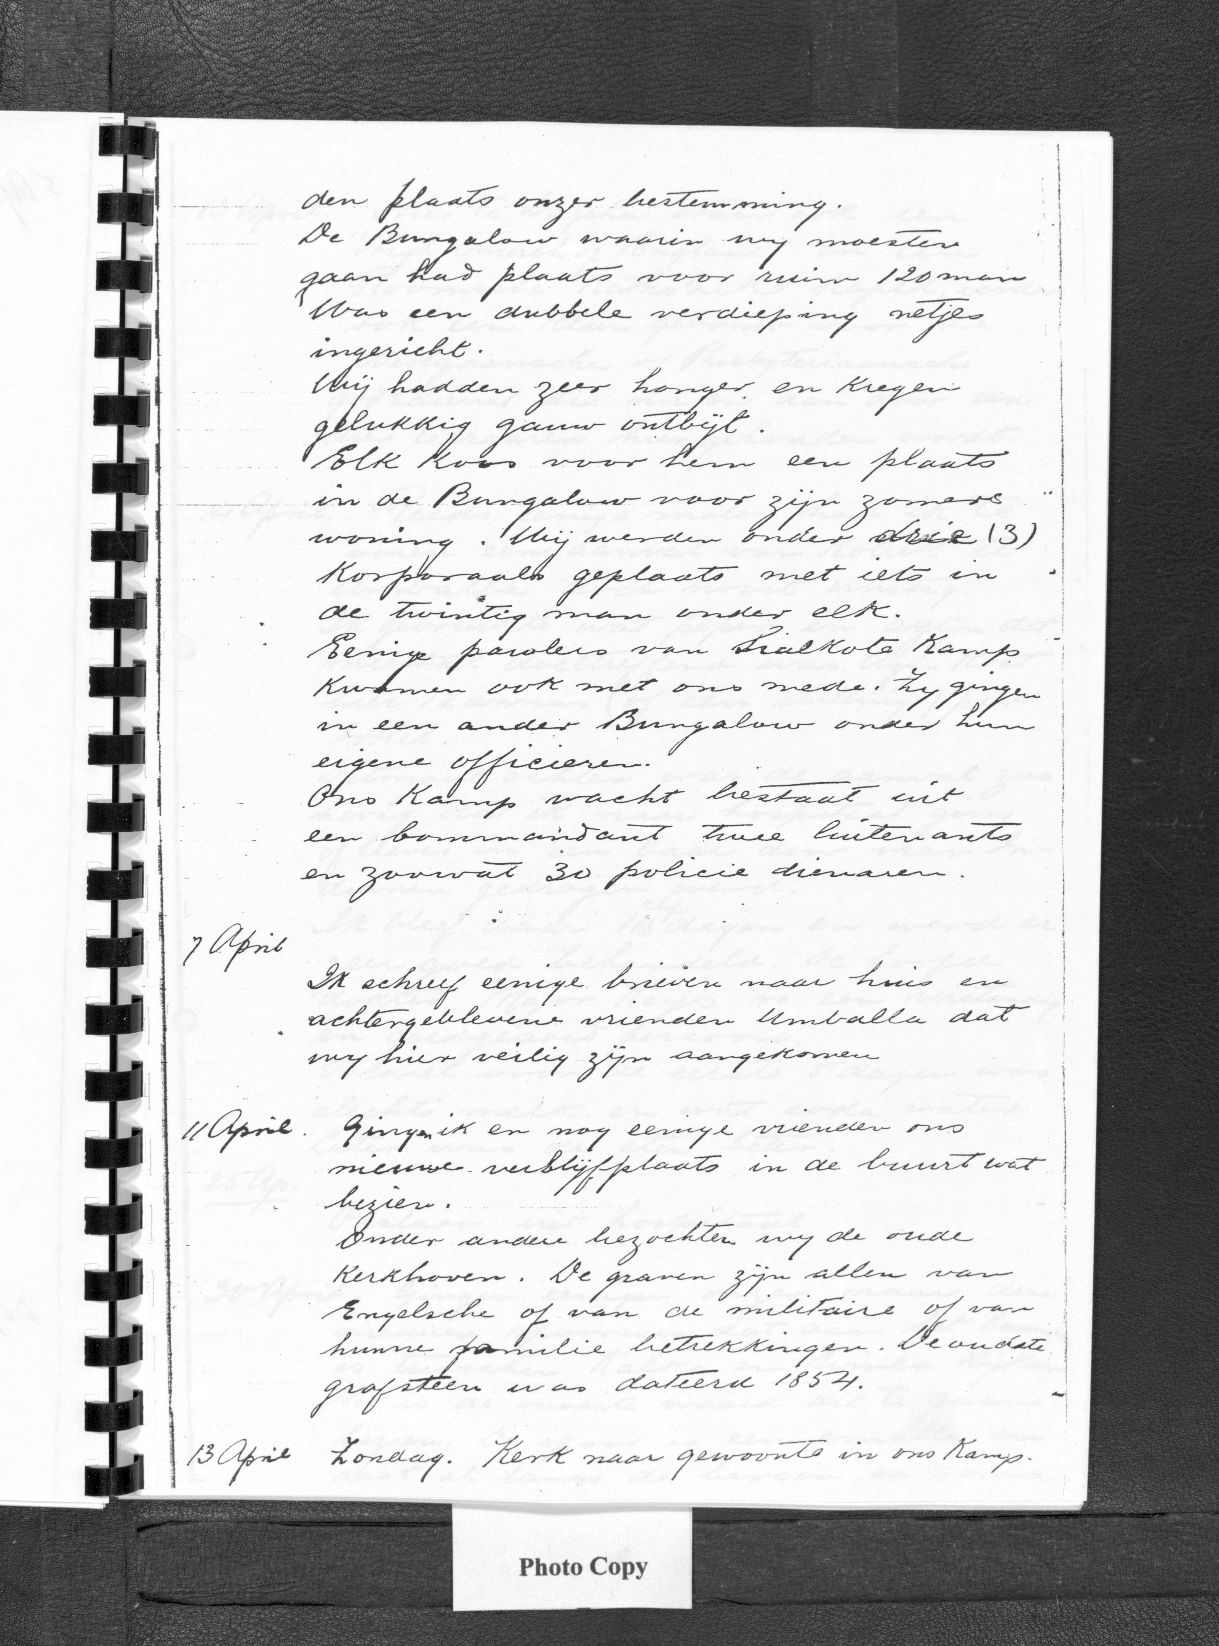 den plaats onzer bestemming.
De Bungalow waarin wy moesten
gaan had plaats voor ruim 120 man
Was een dubbele verdieping netjes
ingericht.
Wij hadden zeer honger. en kregen
gelukkig gauw ontbijt.
Elk koos voor hem een plaats
in de Bungalow voor zijn zomers
woning. Wij werden onder drie (3)
Korporaals geplaats met iets in
de twintig man onder elk.
Eenige parolees van Sialkote Kamp
kwamen ook met ons mede. Zy gingen
in een ander Bungalow onder hun
eigene officieren.
Ons Kamp wacht bestaat uit
een kommandant twee luitenants
en zoowat 30 policie dienaren.
7 April
Ik schreef eenige brieven naar huis en
achtergeblevene vrienden Umballa dat
wy hier veilig zijn aangekomen
11 April. Gingen ik en nog eenige vrienden ons
nieuwe verblijfplaats in de buurt wat
bezien.
Onder andere bezochten wy de oude
Kerkhoven. De graven zijn allen van
Engelsche of van de militaire of van
hunne familie betrekkingen. De oudste
grafsteen was dateerd 1854.
13 April Zondag. Kerk naar gewoonte in ons Kamp.
Photo Copy